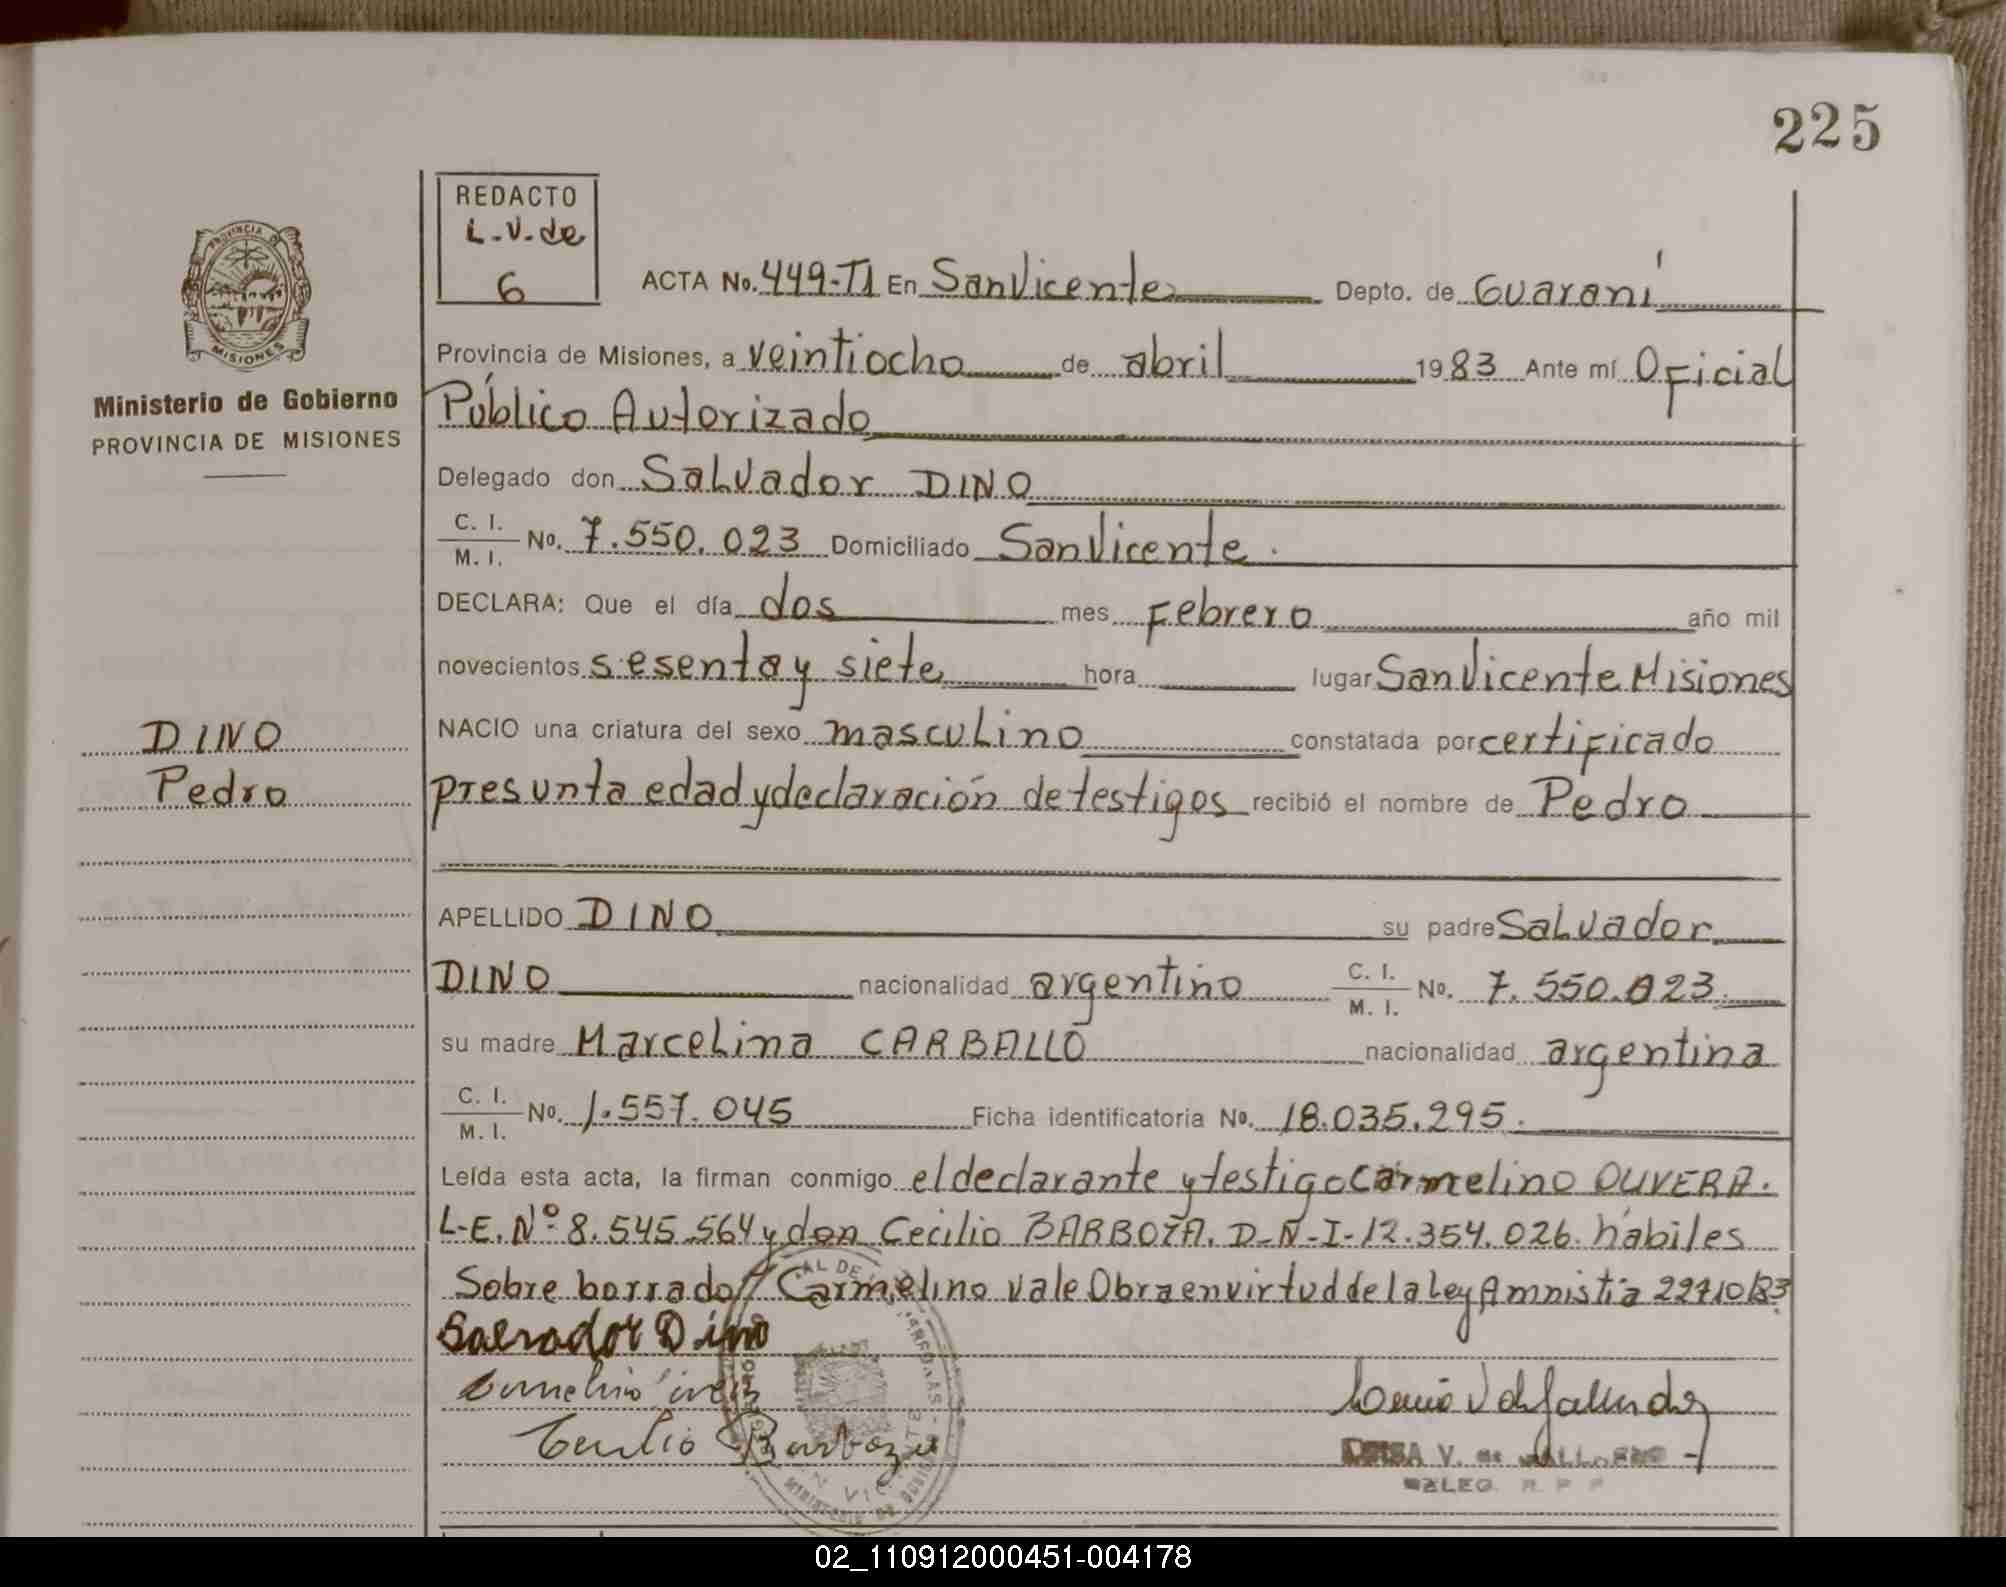 225
REDACTO
L.V. de
G
PROVINCIA DE
MISIONES
Ministerio de Gobierno
PROVINCIA DE MISIONES
ACTA No. 449-T1 En San Vicente Depto. de Guaraní
Provincia de Misiones, a veintiocho de abril 1983 Ante mí Oficial
Público Autorizado
Delegado don Salvador DINO
C. I. / M. I. No. 7.550.023 Domiciliado San Vicente.
DECLARA: Que el día dos mes Febrero año mil
novecientos sesenta y siete hora lugar San Vicente Misiones
DINO
NACIO una criatura del sexo masculino constatada por certificado
Pedro
presunta edad y declaración de testigos recibió el nombre de Pedro
APELLIDO DINO su padre Salvador
DINO nacionalidad argentino C. I. / M. I. No. 7.550.023
su madre Marcelina CARBALLO nacionalidad argentina
C. I. / M. I. No. 1.557.045 Ficha identificatoria No. 18.035.295.
Leída esta acta, la firman conmigo el declarante y testigo Carmelino OLIVERA.
L-E. Nº 8.545.564 y don Cecilio BARBOZA. D-N-I-12.354.026. hábiles
Sobre borrado// Carmelino Vale Obra en virtud de la Ley Amnistia 22710/83
Salvador Dino
Cecilio Barboza
V. de
02_110912000451-004178